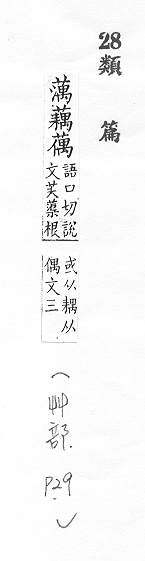 28
類篇
蕅藕䔍
語口切說
文芙蕖根
或从耦从
偶文三
(艸部 P29)